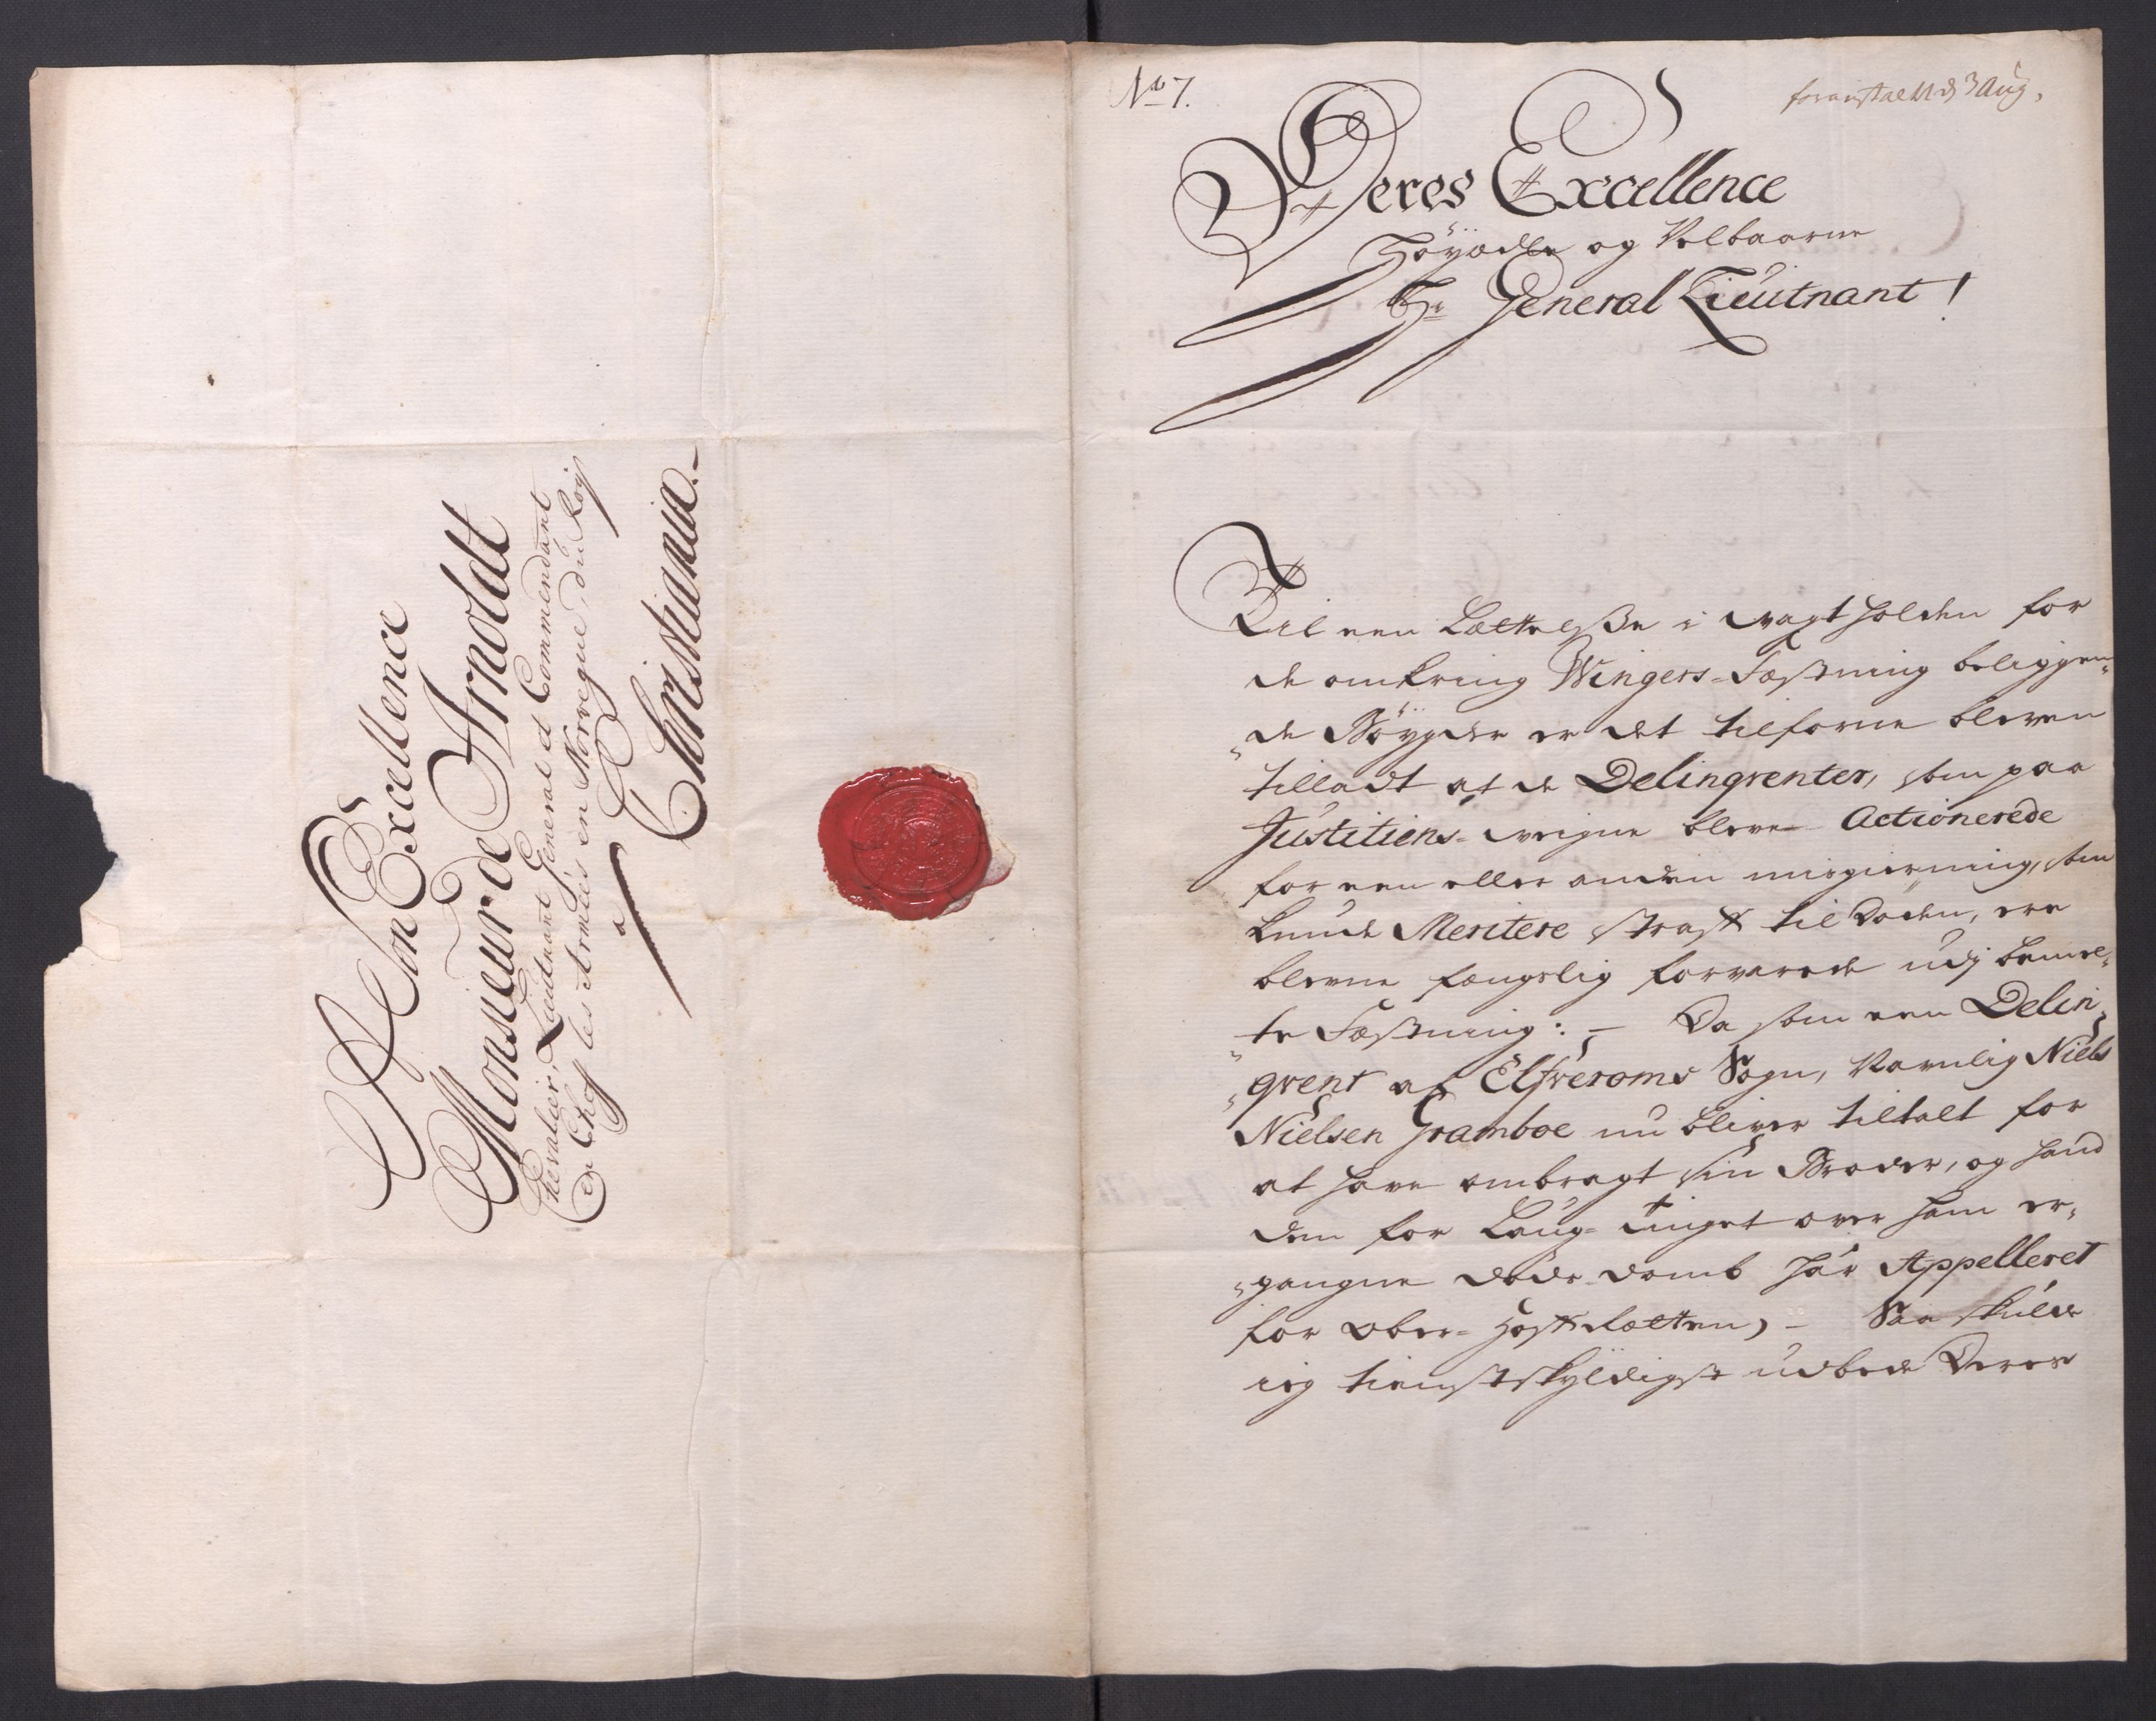 A Son Excellence
Monsieur de Arnoldt
Chevalier, Lieutnant General et Commendant
en Chef les Armées en Norvegue, du Roy
à
Christiania.
No 7.
d 3 Aug.
Deres Excellence
Höyædle og Velbaarne
Hr General Lieutnant!
Til een Lættelsse i vagtholden for
de omkring Wingers-Fæstning beliggen¬
„de Böygder er det tilforne bleven
tilladt at de Delinqventer, som paa
Justitiens-veigne bleve Actionerede
for een eller anden misgierning, som
kunde Meritere straff til Døden, ere
blevne fængslig forvarede udj bemel¬
„te Fæstning: - Da som een Delin¬
„qvent af Elfveroms Sogn, Navnlig Niels
Nielsen Gramboe nu bliver tiltalt for
at have ombragt sin Broder, og hand
den for Laug-tinget over ham er¬
„gangne döds-domb hár Appelleret
for Ober-Hoff Rætten, - Saa skulde
ieg tienstskyldigst udbede Deres